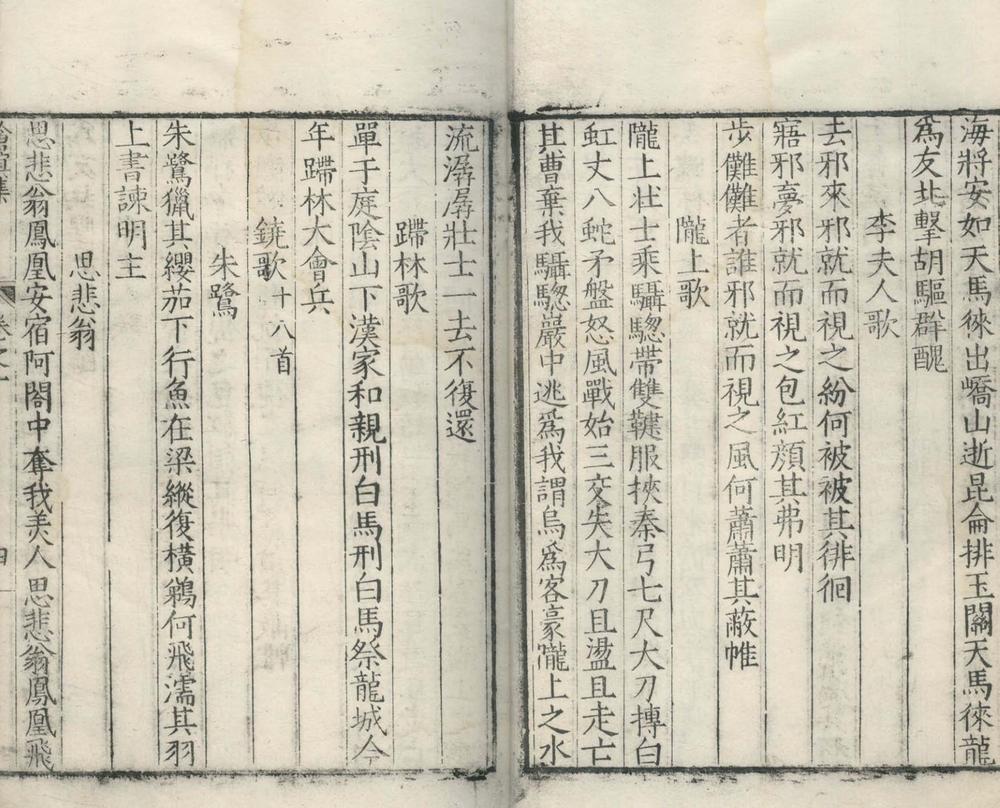 海將安如天馬徠出嶠山逝昆侖排玉關天馬徠龍
爲友北擊胡驅群醜
李夫人歌
去邪來邪就而視之紛何被被其徘徊
寤邪夢邪就而視之包紅顏其弗明
步儺儺者誰邪就而視之風何蕭蕭其蔽帷
隴上歌
隴上壯士乘驦驄帶雙鞬服挾秦弓七尺大刀摶白
虹丈八蛇矛盤怒風戰始三交失大刀且盪且走亡
其曹棄我驦驄巖中逃爲我謂烏爲客豪隴上之水
流潺潺壯士一去不復還
蹛林歌
單于庭陰山下漢家和親刑白馬刑白馬祭龍城今
年蹛林大會兵
鐃歌十八首
朱鷺
朱鷺獵其纓茄下行魚在梁縱復橫鵜何飛濡其羽
上書諫明主
思悲翁
思悲翁鳳凰安宿阿閣中奪我美人思悲翁鳳凰飛
滄溟集 卷之一 四